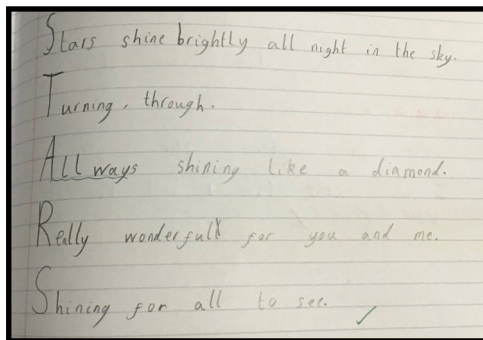 Stars shine brightly all night in the sky.
Turning, through.
Allways shining like a diamond.
Really wonderfull for you and me.
Shining for all to see.